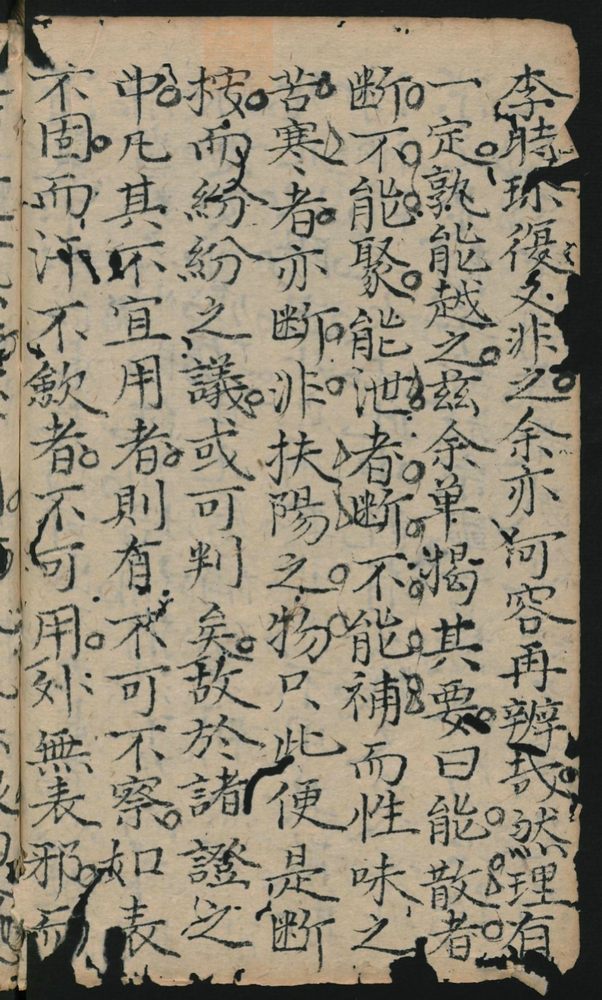 李時珍復又非之余亦何容再辨哉然理有
一定孰能越之兹余单揭其要曰能散者
断不能聚能泄者断不能補而性味之
苦寒者亦断非扶陽之物只此便是断
按而紛紛之議或可判矣故於諸證之
中凡其不宜用者則有不可不察如表
不固而汗不歛者不可用外無表邪而